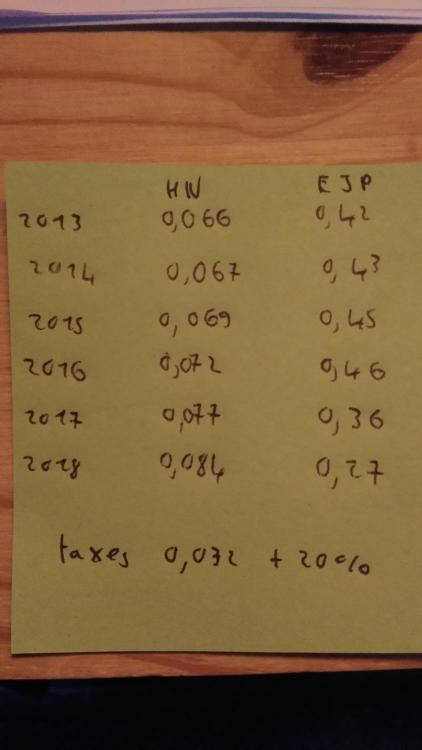 HN EJP
2013 0,066 0,42
2014 0,067 0,43
2015 0,069 0,45
2016 0,072 0,46
2017 0,077 0,36
2018 0,084 0,27
taxes 0,032 + 20%